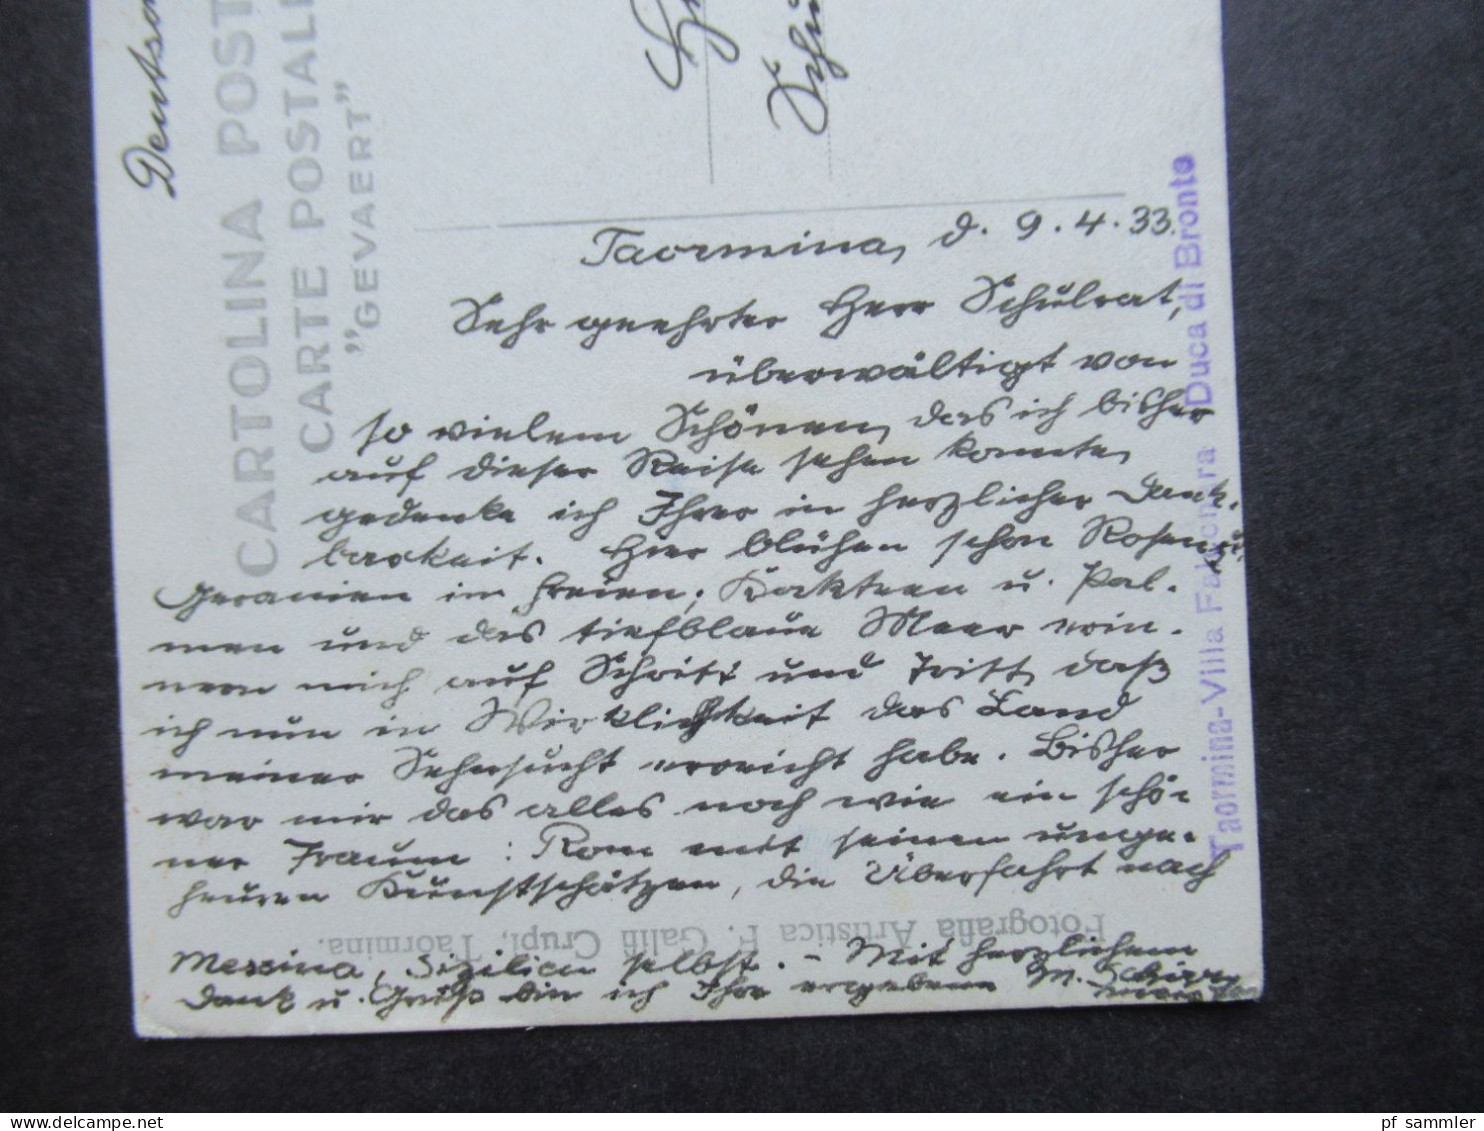 Deutsch
CARTOLINA POST
CARTE POSTAL
"GEVAERT"
Taormina, d. 9.4.33.
Sehr geehrter Herr Schulrat,
überwältigt von
so vielem Schönen, das ich bisher
auf dieser Reise sehen konnte,
gedenke ich Ihrer in herzlicher Dank-
barkeit. Hier blühen schon Rosen u.
Geranien im Freien; Kakteen u. Pal-
men und das tiefblaue Meer erin-
nern mich auf Schritt und Tritt, daß
ich nun in Wirklichkeit das Land
meiner Sehnsucht erreicht habe. Bisher
war mir das alles noch wie ein schö-
ner Traum: Rom mit seinen unge-
heuren Kunstschätzen, die Überfahrt nach
Messina, Sizilien selbst. – Mit herzlichem
Dank u. Gruß bin ich Ihre ergebene M.
Fotografia Artistica F. Galifi Crupi, Taormina.
Taormina-Villa Falconara Duca di Bronte
pf sammler delcampe.net